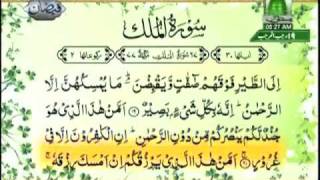 فیضان
06:27 AM
۱۹ رجب المرجب
سُوْرَةُ الْمُلْكِ
اِلَى الطَّيْرِ فَوْقَهُمْ صٰٓفّٰتٍ وَّيَقْبِضْنَ ؔۘ مَا يُمْسِكُهُنَّ اِلَّا
الرَّحْمٰنُ ؕ اِنَّهٗ بِكُلِّ شَيْءٍۭ بَصِيْرٌ ﴿۱۹﴾ اَمَّنْ هٰذَا الَّذِيْ هُوَ
جُنْدٌ لَّكُمْ يَنْصُرُكُمْ مِّنْ دُوْنِ الرَّحْمٰنِ ؕ اِنِ الْكٰفِرُوْنَ اِلَّا فِيْ
غُرُوْرٍ ﴿۲۰﴾ اَمَّنْ هٰذَا الَّذِيْ يَرْزُقُكُمْ اِنْ اَمْسَكَ رِزْقَهٗ ۚ